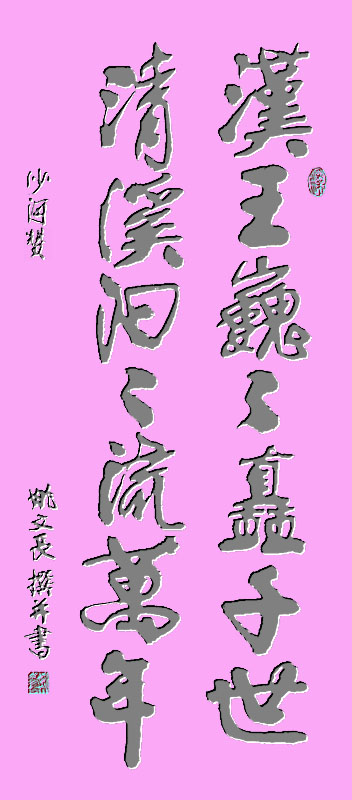 漢王巍〻矗千世
清溪汩〻流萬年
沙河贊
姚文長撰并書